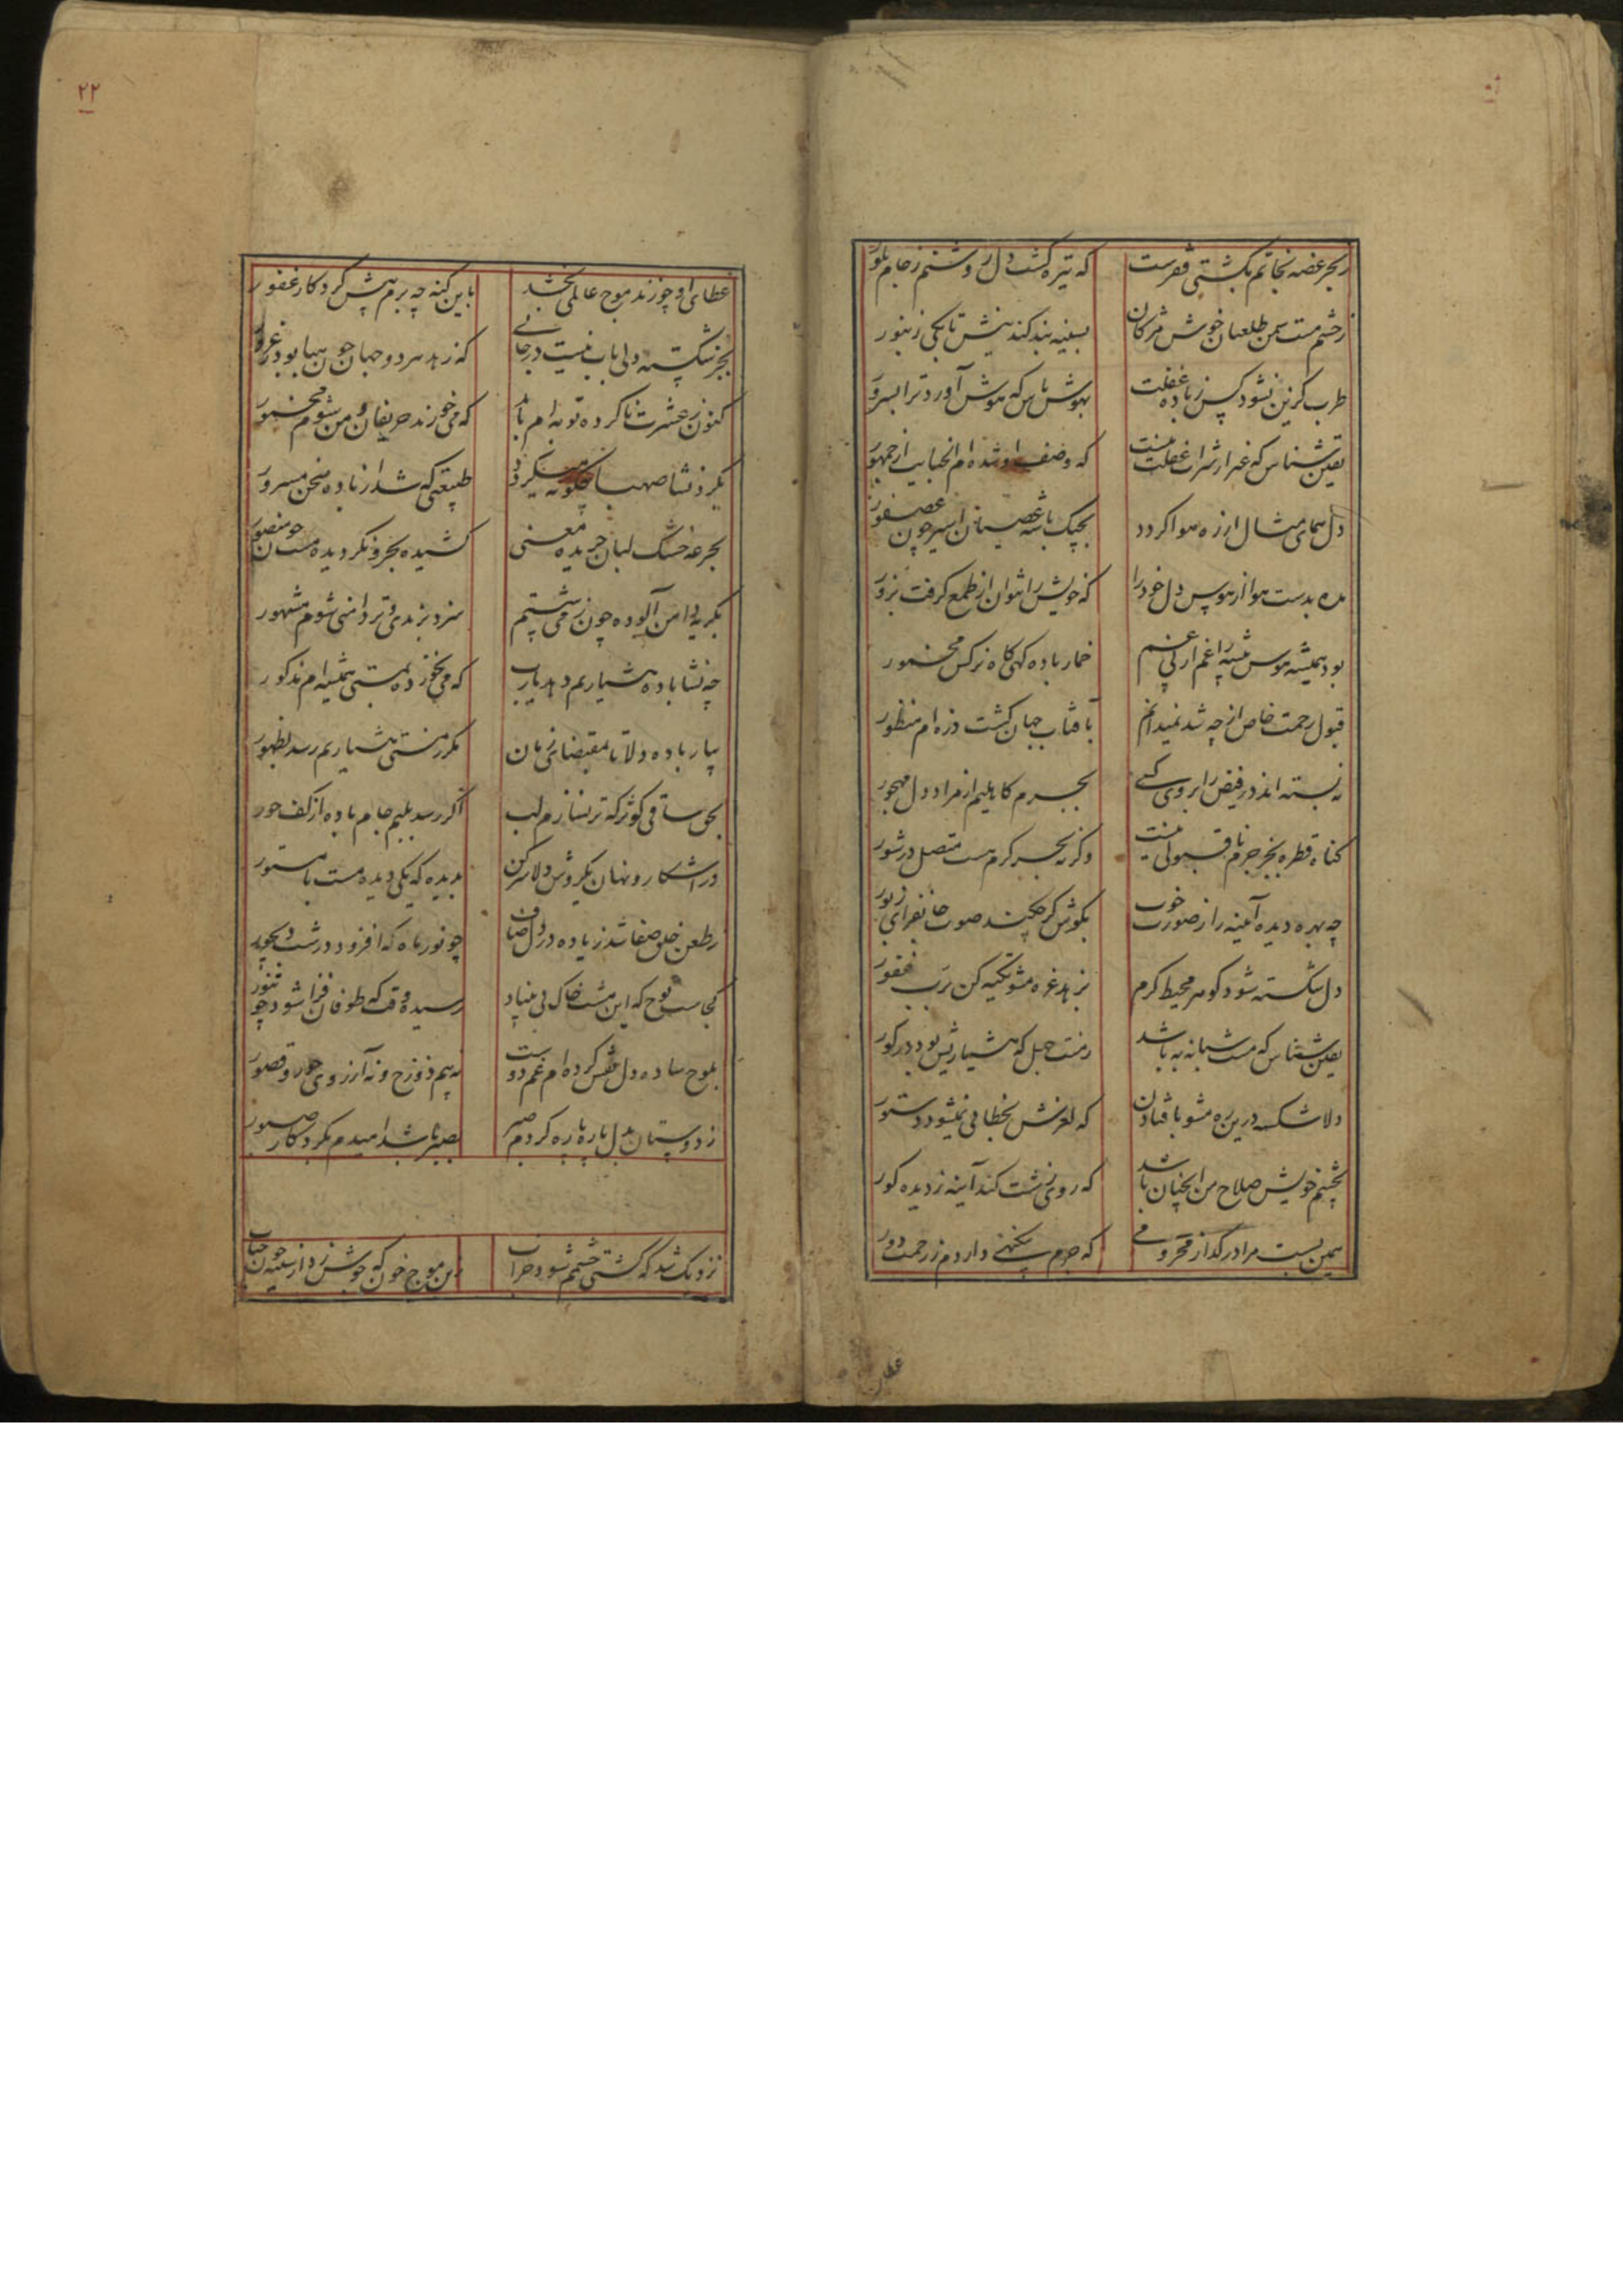 زبحر غصه نجاتم بکشتی قعرست
که تیره گشت دل روشنم ز جام بلور
ز چشم مست سمن طلعتان خوش مژگان
بسینه بند کند نیش تا بکی زنبور
طرب گزین نشود کس ز باده غفلت
بهوش باش که هوش آورد ترا بسرور
یقین شناس که غیر از شراب غفلت نیست
که وصف او شده ام الخبایث از جمهور
دل همای مثال از ره هوا گردد
بچنگ باشه عصیان اسیر چون عصفور
مده بدست هوا از هوس دل خود را
که خویش را نتوان از طمع گرفت بزور
بود همیشه هوس پیشه را غم از پی غم
خمار باده کهی کاه نرکس مخمور
قبول رحمت خاص از چه شد نمیدانم
بآفتاب جهان گشت ذره ام منظور
نه بسته اند در فیض را بروی کسی
بجرم کاهلیم از مراد دل مهجور
گناه قطره ببحر جرم ناقبولی نیست
وگرنه بحر کرم هست متصل در شور
چه بهره دیده آئینه را ز صورت خوب
بگوش کر چکند صوت جانفزای زبور
دل شکسته شود گوهر محیط کرم
بزهد غره مشو تکیه کن برب غفور
یقین شناس که مست شبانه به باشد
ز مست جهل که هشیاریش بود در گور
دلا شکسته درین ره مشو بافتادن
که لغزش بخطا فی نمیشود دستور
بچشم خویش صلاح من آنچنان باشد
که روی زشت کند آینه ز دیده کور
همین بست مرا در گداز محرومی
که جرم بیگنهی داردم ز رحمت دور
عطا
۲۲
عطای او چو زند موج عالمی بخشد
باین گنه چه برم پیش کردگار غفور
بجز شکسته دلی باب نیست در جائی
که زهد هر دو جهان چون هبا بود ز غرور
کنون ز عشرت ناکرده توبه ام باید
که می خورند حریفان و من شوم مخمور
بگرد نشا صهبا چگونه میگردد
طبیعتی که شد از باده سخن مسرور
بجرعه خشک لبان جریده معنی
کشیده بحر و نگردیده مست چون منصور
بگریه دامن آلوده چون ز می شستم
سزد بزهدی و تردامنی شوم مشهور
چه نشا باده هشیاریم دهد یارب
که می نخورده بمستی همیشه ام مذکور
بیار باده دلا تا بمقتضای زمان
مگر ز مستی هشیاریم رسد بظهور
بحق ساقی کوثر که تر نسازم لب
اگر رسد بلبم جام باده از کف حور
در آشکار و نهان یکروش دلا سر کن
بدیده که یکی دیده مست با مستور
ز طعن خلق صفا شد زیاده در دل صاف
چو نور ماه که افزود در شب دیجور
کجاست نوح که این مشت خاک بی بنیاد
رسیده وقت که طوفان فزا شود چو تنور
بلوح ساده دل نقش کرده ام غم دوست
نه بیم دوزخ و نه آرزوی حور و قصور
ز دوستان بدل پاره پاره کردم صبر
بصبر باشد امیدم بکردگار صبور
نزدیک شد که کشتی چشمم شود خراب
زین موج خون که جوش زد از سینه چون حباب